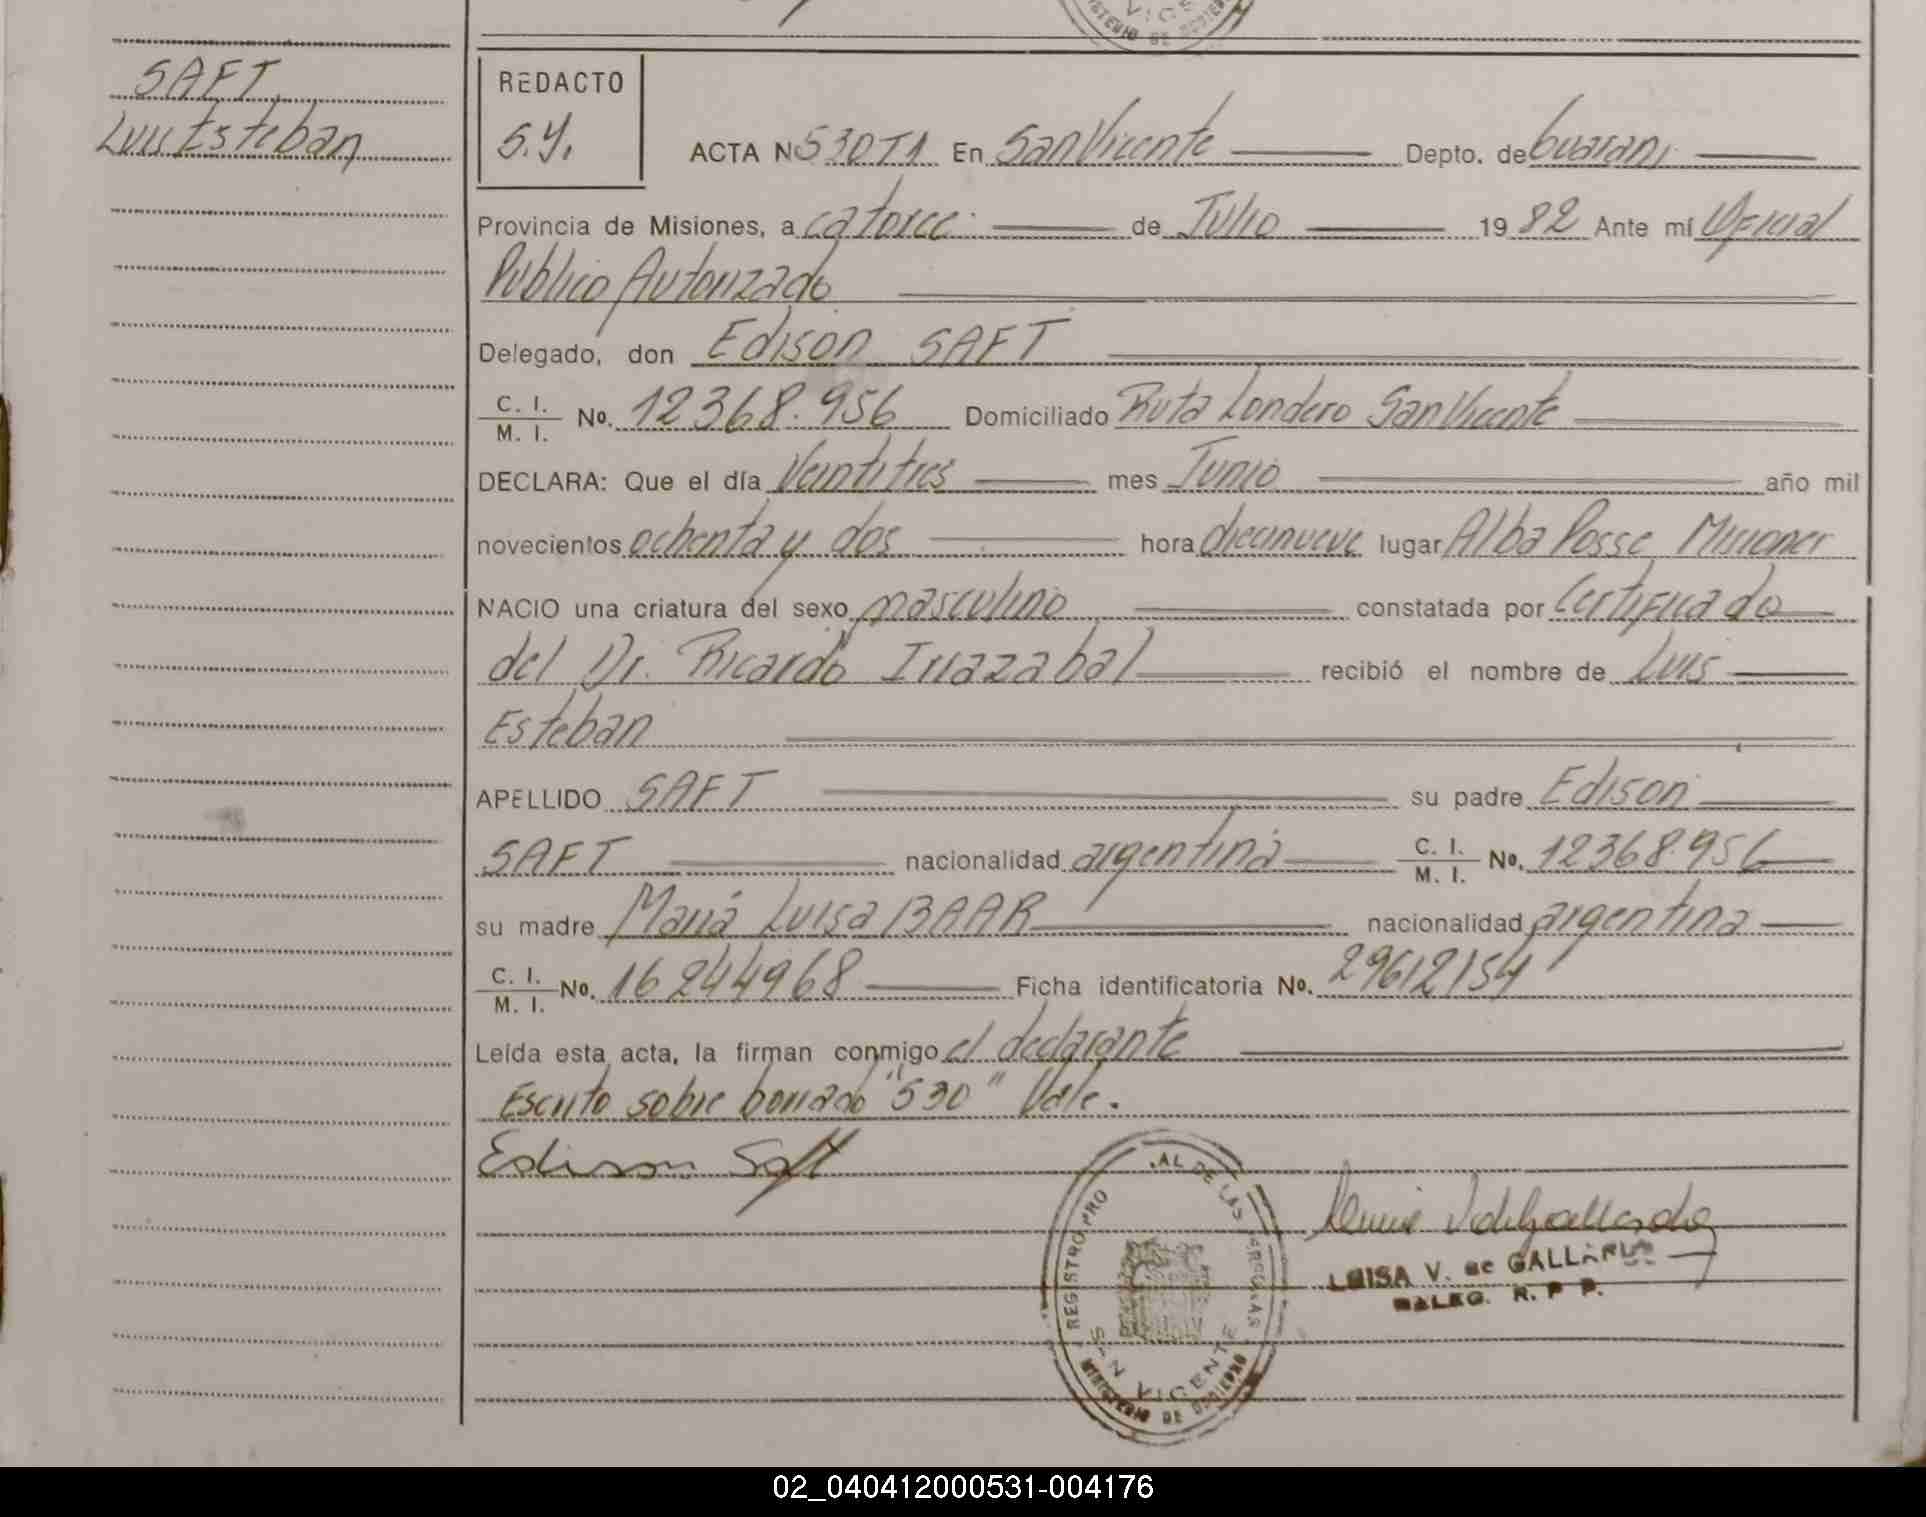 SAFT
Luis Esteban
REDACTO
S.Y.
ACTA Nº 530 T1 En San Vicente Depto. de Guarani
Provincia de Misiones, a catorce de Julio 1982 Ante mí Oficial
Publico Autorizado
Delegado, don Edison SAFT
C. I. / M. I. No. 12368.956 Domiciliado Ruta Londero San Vicente
DECLARA: Que el día Veintitres mes Junio año mil
novecientos ochenta y dos hora diecinueve lugar Alba Posse Misiones
NACIO una criatura del sexo masculino constatada por Certificado
del Dr. Ricardo Irrazabal recibió el nombre de Luis
Esteban
APELLIDO SAFT su padre Edison
SAFT nacionalidad argentina C. I. / M. I. No. 12368.956
su madre María Luisa BAAR nacionalidad argentina
C. I. / M. I. No. 16244968 Ficha identificatoria No. 29612154
Leída esta acta, la firman conmigo el declarante
Escrito sobre borrado "530" Vale.
Edison Saft
REGISTRO PRO AL DE LAS
SAN VICENTE
MINISTERIO DE GOBIERNO
LUISA V. de GALLARDO
DELEG. R. P. P.
02_040412000531-004176